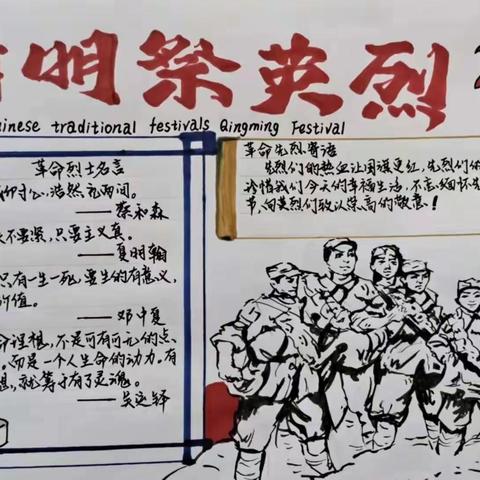 明祭英烈
inese traditional festivals Qingming Festival
革命烈士名言
寸心,浩然充两间。
——蔡和森
不要紧,只要主义真。
——夏明翰
只有一生一死,要生的有意义,
价值。
——邓中夏
命理想,不是可有可无的点
而是一个人生命的动力。有
想,就等于有了灵魂。
——吴运铎
革命先烈寄语
先烈们的热血让国旗更红,先烈们的
珍惜我们今天的幸福生活,不忘缅怀先
节,向英烈们致以崇高的敬意!